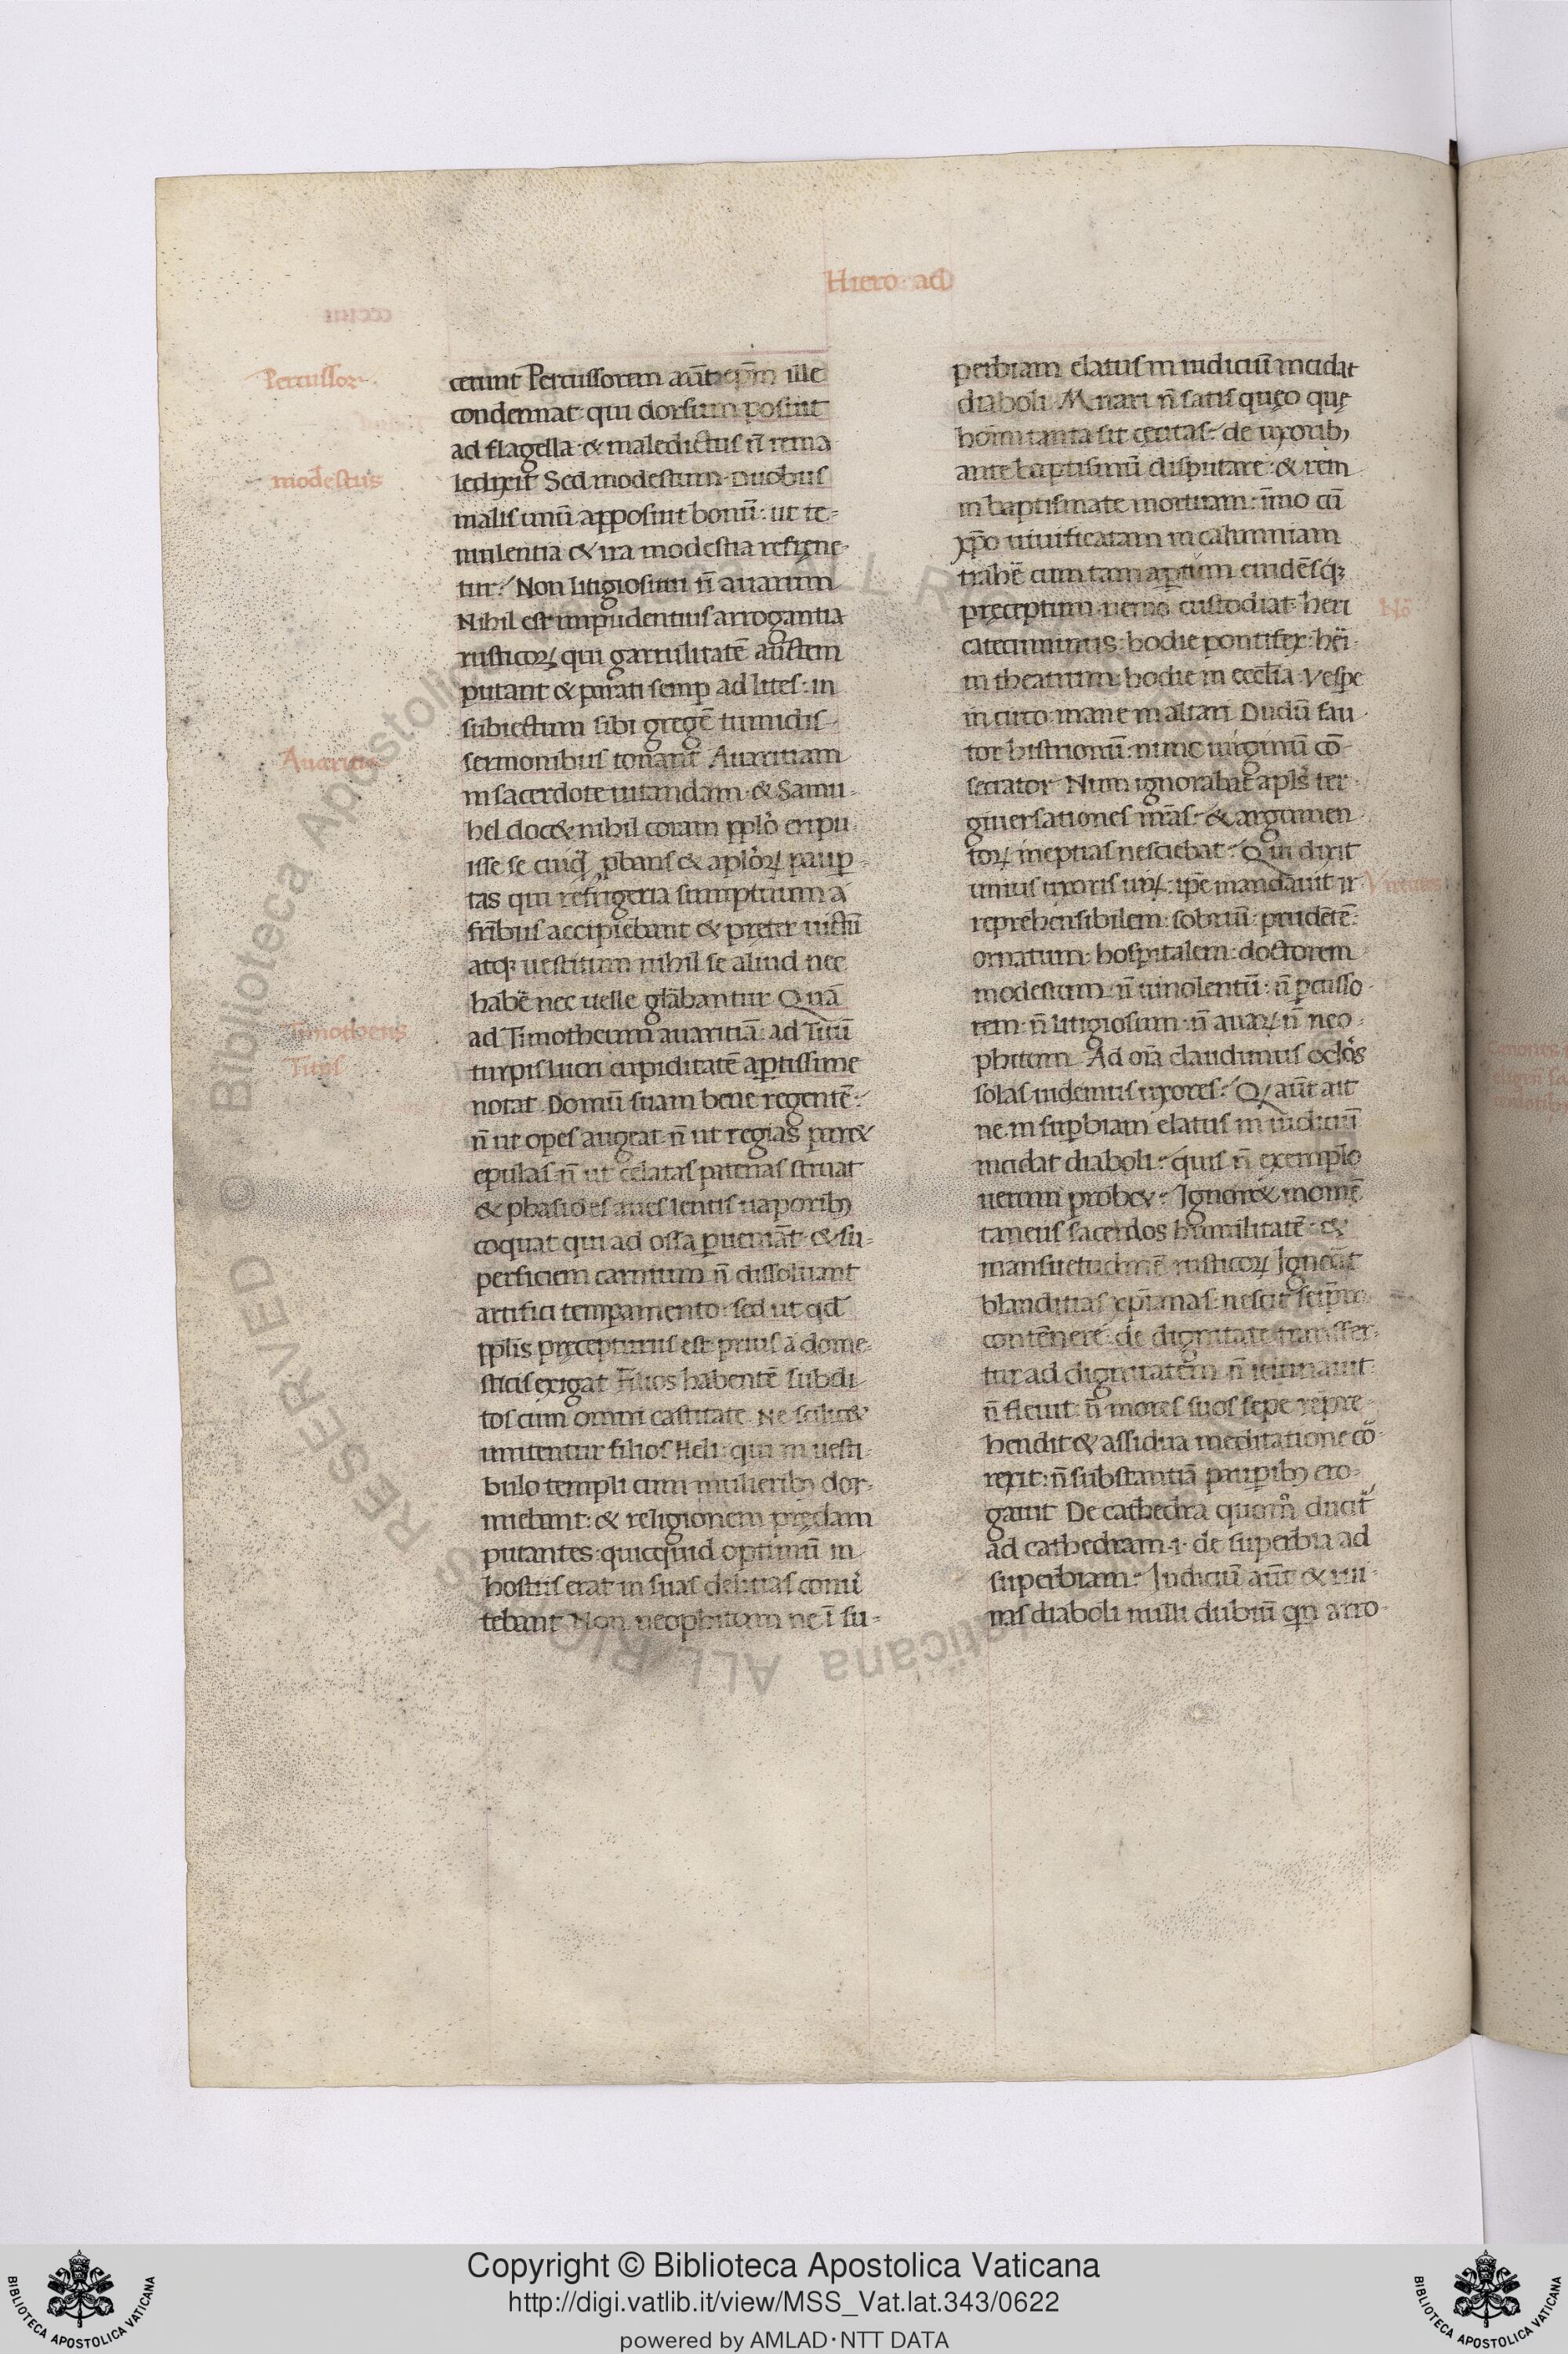 Hiero ad
Percussor
modestus
Avarum
Timotheus
Titus
cerunt Percussorem aūt ep̄m ille
condemnat qui dorsum posuit
ad flagella & maledictus n̄ rema
ledixit Sed modestum Duobus
malis unū apposuit bonū: ut te-
mulentia & ira modestia refrene-
tur. Non litigiosum n̄ auarum
Nihil est impudentius arrogantia
rusticoꝝ qui garrulitatē auctem
putant & parati semp̄ ad lites: in
subiectum sibi gregē tumidis
sermonibus tonant Auaritiam
in sacerdote uitandam & Samu-
hel doc& nihil coram pplo eripu
isse se cuiq̄ ꝓbans & aploꝝ paup-
tas qui refrigeria sumptuum a
fr̄ibus accipiebant & preter uictū
atq; uestitum nihil se aliud nec
habē nec uelle gl̄abantur Quā
ad Timotheum auaritiā: ad Titū
turpis lucri cupiditatē apertissime
notat Domū suam bene regentē:
n̄ ut opes augeat n̄ ut regias par&
epulas n̄ ut celatas patenas struat
& phasides aues lentis uaporibȝ
coquat qui ad ossa ꝑueniāt & su-
perficiem carnium n̄ dissoluant
artifici temꝑamento: sed ut qd̄
pplis pręcepturus est prius a dome-
sticis exigat Filios habentē subdi
tos cum omni castitate Ne scilic&
imitentur filios Heli: qui in uesti-
bulo templi cum mulieribȝ dor-
miebant: & religionem prędam
putantes quicquid optimū in
hostiis erat in suas delitias conu̇
tebant Non neophitum ne ī su-
perbiam elatus in iudiciū incidat
diaboli Mirari n̄ satis quęo quę
hoīm tanta sit cęcitas: de uxoribȝ
ante baptismū disputare & rem
in baptismate mortuam: īmo cū
xp̄o uiuificatam in calumniam
trahē cum tam aꝑtum euidēsq;
pręceptum nemo custodiat heri
catecuminus: hodie pontifex: hēi-
in theatrum: hodie in eccl̄ia Vespe
in circo: mane in altari Dudū fau-
tor histrionū: nunc uirginū cō-
secrator Num ignorabat apl̄s ter-
giuersationes nr̄as & argumen-
toꝝ ineptias nesciebat: Qui dixit
unius uxoris uiꝝ: ip̄e mandauit ir
reprehensibilem: sobriū: prudētē:
ornatum: hospitalem: doctorem
modestum n̄ uinolentū: n̄ ꝑcusso-
rem: n̄ litigiosum: n̄ auaꝝ n̄ neo-
phitum Ad om̄a claudimus oclo̊s
solas uidemus uxores: Qꝝ aūt ait
ne in suꝑbiam elatus in iudiciū
incidat diaboli: quis n̄ exemplo
uerum probe&: Ignor& momē
taneus sacerdos humilitatē &
mansuetudinē rusticoꝝ Ignorat
blanditias xp̄ianas: nescit seip̄m
contēnere: de dignitate transfer-
tur ad dignitatem n̄ ieiunauit
n̄ fleuit: n̄ mores suos sepe repre-
hendit & assidua meditatione cō
rexit: n̄ substantiā pauꝑibȝ ero-
gauit De cathedra quom̊ ducit̄
ad cathedram .i. de superbia ad
superbiam: Iudiciū aūt & rui-
nas diaboli nulli dubiū qn̄ arro-
Nō
Virtutes
Copyright © Biblioteca Apostolica Vaticana
http://digi.vatlib.it/view/MSS_Vat.lat.343/0622
powered by AMLAD·NTT DATA
BIBLIOTECA APOSTOLICA VATICANA
BIBLIOTECA APOSTOLICA VATICANA